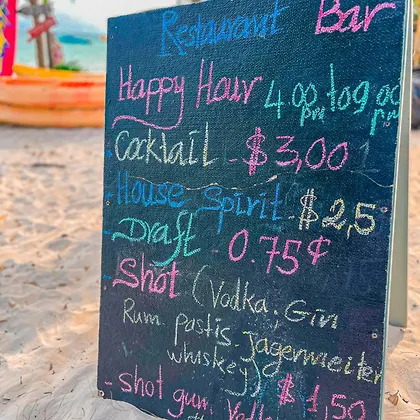 Restaurant Bar
Happy Hour 4.00 pm to 9.00 pm
Cocktail - $3,00
- House Spirit - $2,5
- Draft - 0.75¢
- Shot (Vodka. Gin
Rum. pastis. Jagermeiter
whiskey)
- shot gun. $1,50